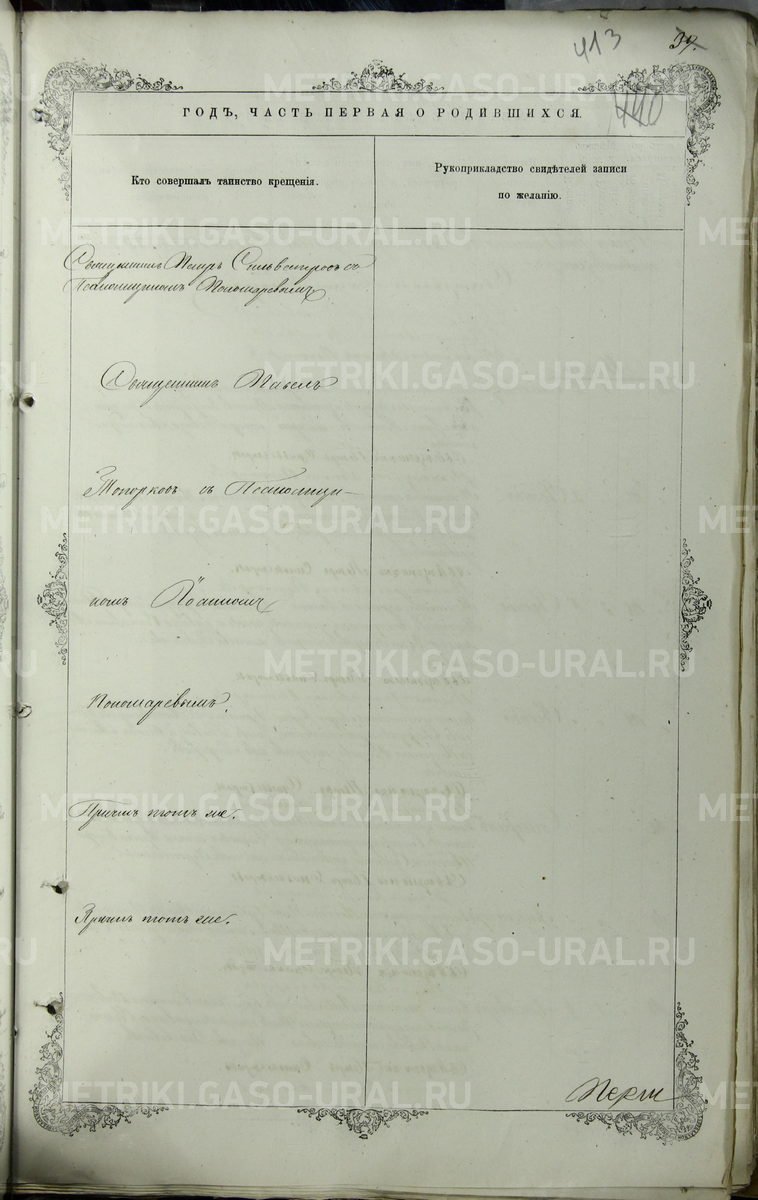 413
39.
440
ГОДЪ, ЧАСТЬ ПЕРВАЯ О РОДИВШИХСЯ.
Кто совершалъ таинство крещенія.
Рукоприкладство свидѣтелей записи
по желанію.
Священникъ Петръ Сильвестровъ съ
Псаломщикомъ Пономаревымъ
Священникъ Павелъ
Топорковъ съ Псаломщи-
комъ Іоанномъ
Пономаревымъ.
Причтъ тотъ же.
Причтъ тотъ же.
METRIKI.GASO-URAL.RU